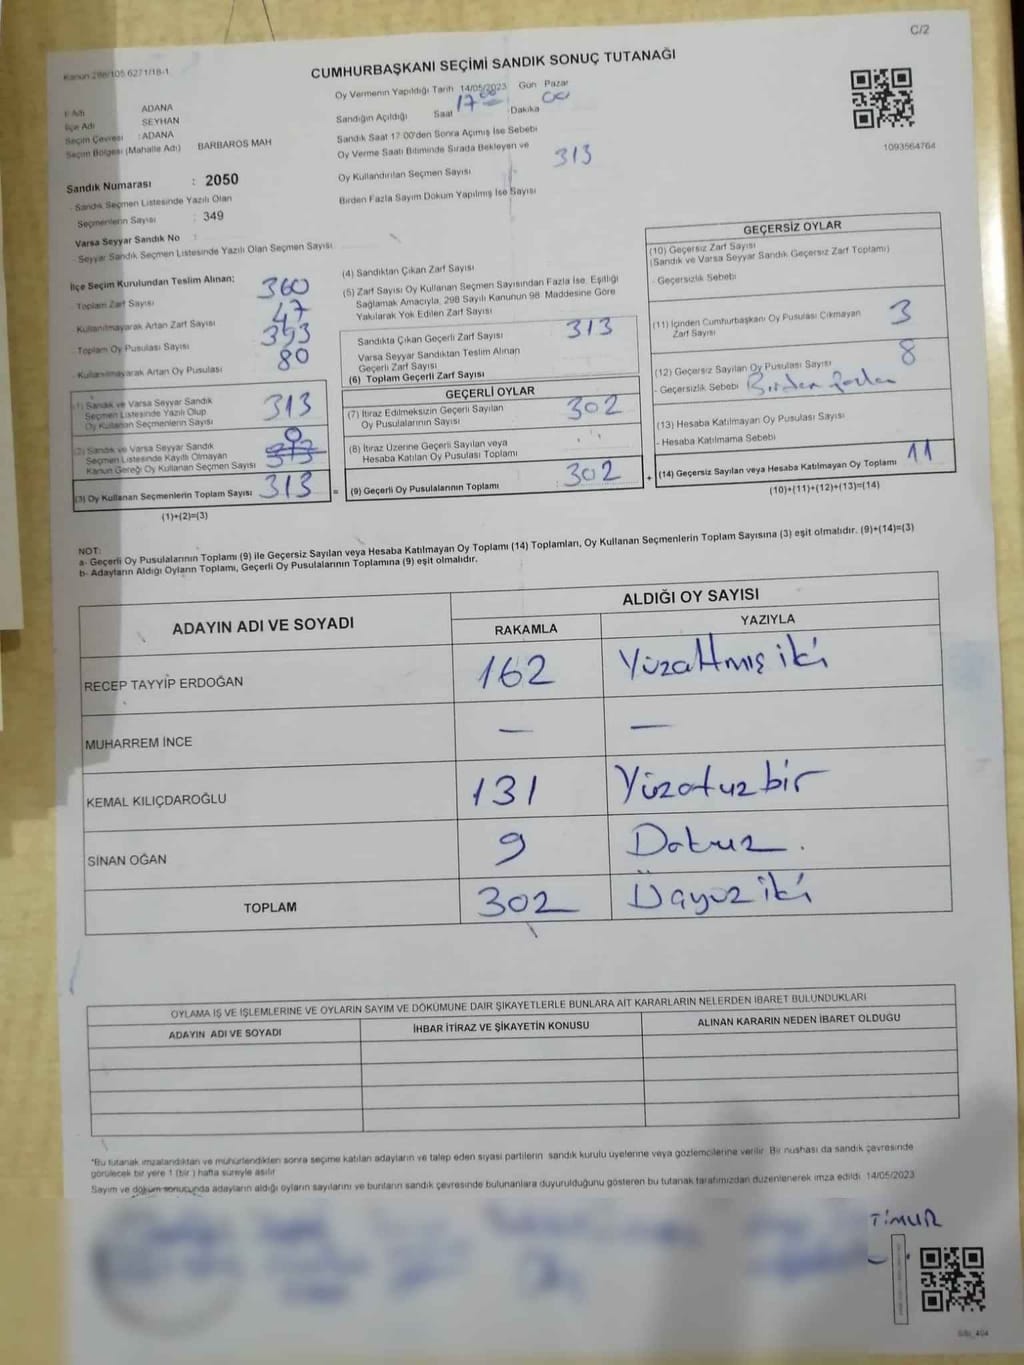 C/2
Kanun 298/105 6271/18-1
CUMHURBAŞKANI SEÇİMİ SANDIK SONUÇ TUTANAĞI
İl Adı ADANA
İlçe Adı SEYHAN
Seçim Çevresi : ADANA
Seçim Bölgesi (Mahalle Adı) BARBAROS MAH
Sandık Numarası : 2050
- Sandık Seçmen Listesinde Yazılı Olan
Seçmenlerin Sayısı : 349
Varsa Seyyar Sandık No :
- Seyyar Sandık Seçmen Listesinde Yazılı Olan Seçmen Sayısı
Oy Vermenin Yapıldığı Tarih 14/05/2023 Gün Pazar
Sandığın Açıldığı Saat 17 00 Dakika 00
Sandık Saat 17 00'den Sonra Açımış İse Sebebi
Oy Verme Saati Bitiminde Sırada Bekleyen ve
Oy Kullandırılan Seçmen Sayısı 313
Birden Fazla Sayım Döküm Yapılmış İse Sayısı
1093564764
İlçe Seçim Kurulundan Teslim Alınan;
- Toplam Zarf Sayısı 360
- Kullanılmayarak Artan Zarf Sayısı 47
- Toplam Oy Pusulası Sayısı 393
- Kullanılmayarak Artan Oy Pusulası 80
(1) Sandık ve Varsa Seyyar Sandık
Seçmen Listesinde Yazılı Olup
Oy Kullanan Seçmenlerin Sayısı 313
(2) Sandık ve Varsa Seyyar Sandık
Seçmen Listesinde Kayıtlı Olmayan
Kanun Gereği Oy Kullanan Seçmen Sayısı 313 0
(3) Oy Kullanan Seçmenlerin Toplam Sayısı 313 =
(1)+(2)=(3)
(4) Sandıktan Çıkan Zarf Sayısı
(5) Zarf Sayısı Oy Kullanan Seçmen Sayısından Fazla İse, Eşitliği
Sağlamak Amacıyla, 298 Sayılı Kanunun 98. Maddesine Göre
Yakılarak Yok Edilen Zarf Sayısı
Sandıkta Çıkan Geçerli Zarf Sayısı 313
Varsa Seyyar Sandıktan Teslim Alınan
Geçerli Zarf Sayısı
(6) Toplam Geçerli Zarf Sayısı
GEÇERLİ OYLAR
(7) İtiraz Edilmeksizin Geçerli Sayılan
Oy Pusulasının Sayısı 302
(8) İtiraz Üzerine Geçerli Sayılan veya
Hesaba Katılan Oy Pusulası Toplamı
(9) Geçerli Oy Pusulalarının Toplamı : 302 +
GEÇERSİZ OYLAR
(10) Geçersiz Zarf Sayısı
(Sandık ve Varsa Seyyar Sandık Geçersiz Zarf Toplamı)
- Geçersizlik Sebebi
(11) İçinden Cumhurbaşkanı Oy Pusulası Çıkmayan
Zarf Sayısı 3
(12) Geçersiz Sayılan Oy Pusulası Sayısı 8
- Geçersizlik Sebebi Birden fazla
(13) Hesaba Katılmayan Oy Pusulası Sayısı
- Hesaba Katılmama Sebebi
(14) Geçersiz Sayılan veya Hesaba Katılmayan Oy Toplamı 11
(10)+(11)+(12)+(13)=(14)
NOT:
a- Geçerli Oy Pusulalarının Toplamı (9) ile Geçersiz Sayılan veya Hesaba Katılmayan Oy Toplamı (14) Toplamları, Oy Kullanan Seçmenlerin Toplam Sayısına (3) eşit olmalıdır. (9)+(14)=(3)
b- Adayların Aldığı Oyların Toplamı, Geçerli Oy Pusulalarının Toplamına (9) eşit olmalıdır.
ADAYIN ADI VE SOYADI ALDIĞI OY SAYISI
RAKAMLA YAZIYLA
RECEP TAYYİP ERDOĞAN 162 Yüzaltmış iki
MUHARREM İNCE — —
KEMAL KILIÇDAROĞLU 131 Yüzotuz bir
SİNAN OĞAN 9 Dokuz.
TOPLAM 302 Üçyüz iki
OYLAMA İŞ VE İŞLEMLERİNE VE OYLARIN SAYIM VE DÖKÜMÜNE DAİR ŞİKAYETLERLE BUNLARA AİT KARARLARIN NELERDEN İBARET BULUNDUKLARI
ADAYIN ADI VE SOYADI İHBAR İTİRAZ VE ŞİKAYETİN KONUSU ALINAN KARARIN NEDEN İBARET OLDUĞU
*Bu tutanak imzalandıktan ve mühürlendikten sonra seçime katılan adayların ve talep eden siyasi partilerin sandık kurulu üyelerine veya gözlemcilerine verilir. Bir nushası da sandık çevresinde
görülecek bir yere 1 (bir) hafta süreyle asılır
Sayım ve döküm sonucunda adayların aldığı oyların sayılarını ve bunların sandık çevresinde bulunanlara duyurulduğunu gösteren bu tutanak tarafımızdan düzenlenerek imza edildi. 14/05/2023
TİMUR